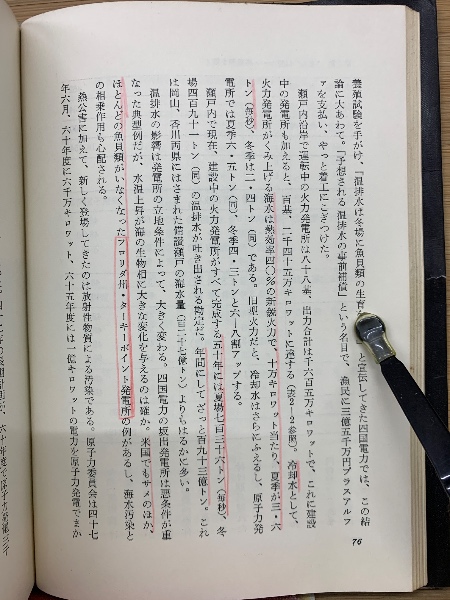 養殖試験を手がけ、「温排水は冬場に魚貝類の生育 と宣伝してきた四国電力では、この結
論に大あわて。「予想される温排水の事前補償」という名目で、漁民に三億五千万円プラスアルフ
ァを支払い、やっと着工にこぎつけた。
瀬戸内沿岸で運転中の火力発電所は八十八基、出力合計は千六百五万キロワットで、これに建設
中の発電所も加えると、百基、二千四十五万キロワットに達する(表2―2参照)。冷却水として、
火力発電所がくみ上げる海水は熱効率四〇%の新鋭火力で、十万キロワット当たり、夏季が三・六
トン(毎秒)、冬季は二・四トン(同)である。旧型火力だと、冷却水はさらにふえるし、原子力発
電所では夏季六・五トン(同)、冬季四・三トンと六―八割アップする。
瀬戸内で現在、建設中の火力発電所がすべて完成する五十年には夏場七百三十六トン(毎秒)、冬
場四百九十一トン(同)の温排水が吐き出される勘定だ。年間にしてざっと百九十三億トン。これ
は岡山、香川両県にはさまれた備讃瀬戸の海水量(百二十七億トン)よりもはるかに多い。
温排水の影響は発電所の立地条件によって、大きく変わる。四国電力の坂出発電所は悪条件が重
なった典型例だが、水温上昇が海の生物相に大きな変化を与えるのは確か。米国でもサメのほか、
ほとんどの魚貝類がいなくなったフロリダ州・ターキーポイント発電所の例があるし、海水汚染と
の相乗作用も心配される。
熱公害に加えて、新しく登場してきたのは放射性物質による汚染である。原子力委員会は四十七
年六月、六十年度に六千万キロワット、六十五年度には一億キロワットの電力を原子力発電でまか
76